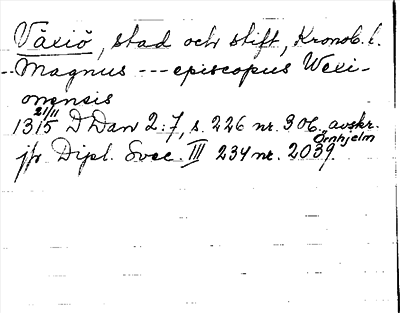 Växiö, stad och stift, Kronob. l.
-- Magnus --- episcopus Wexi-
onensis
21/11
1315 D Dan 2:7, s. 226 nr. 306. avskr.
Örnhjelm
jfr Dipl. Svec. III 234 nr. 2039.